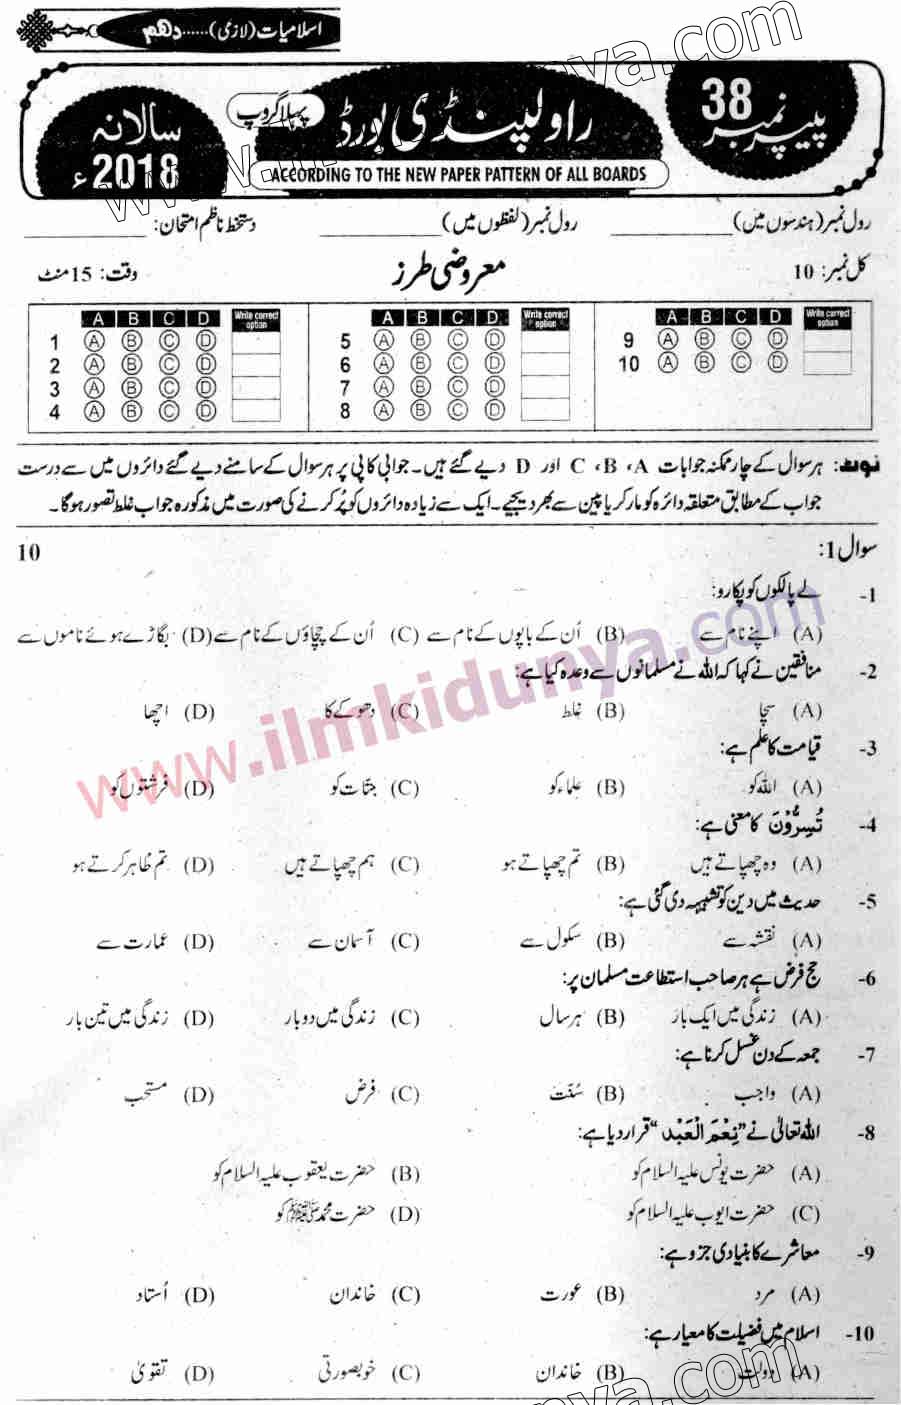 اسلامیات (لازمی)......دھم
پیپر نمبر 38
راولپنڈی بورڈ
پہلا گروپ
سالانہ 2018ء
ACCORDING TO THE NEW PAPER PATTERN OF ALL BOARDS
رول نمبر (ہندسوں میں)____________ رول نمبر (لفظوں میں)____________ دستخط ناظم امتحان:____________
کل نمبر: 10 معروضی طرز وقت: 15 منٹ
A B C D Write correct option A B C D Write correct option A B C D Write correct option
1 A B C D 5 A B C D 9 A B C D
2 A B C D 6 A B C D 10 A B C D
3 A B C D 7 A B C D
4 A B C D 8 A B C D
نوٹ: ہر سوال کے چار ممکنہ جوابات A، B، C اور D دیے گئے ہیں۔ جوابی کاپی پر ہر سوال کے سامنے دیے گئے دائروں میں سے درست
جواب کے مطابق متعلقہ دائرہ کو مارکر یا پین سے بھر دیجیے۔ ایک سے زیادہ دائروں کو پُر کرنے کی صورت میں مذکورہ جواب غلط تصور ہوگا۔
سوال 1: 10
1- لے پالکوں کو پکارو:
(A) اپنے نام سے (B) اُن کے باپوں کے نام سے (C) اُن کے چچاؤں کے نام سے (D) بگاڑے ہوئے ناموں سے
2- منافقین نے کہا کہ اللہ نے مسلمانوں سے وعدہ کیا ہے:
(A) سچا (B) غلط (C) دھوکے کا (D) اچھا
3- قیامت کا علم ہے:
(A) اللہ کو (B) علماء کو (C) جنّات کو (D) فرشتوں کو
4- تُسِرُّوْنَ کا معنی ہے:
(A) وہ چھپاتے ہیں (B) تم چھپاتے ہو (C) ہم چھپاتے ہیں (D) تم ظاہر کرتے ہو
5- حدیث میں دین کو تشبیہہ دی گئی ہے:
(A) نقشہ سے (B) سکول سے (C) آسمان سے (D) عمارت سے
6- حج فرض ہے ہر صاحب استطاعت مسلمان پر:
(A) زندگی میں ایک بار (B) ہر سال (C) زندگی میں دو بار (D) زندگی میں تین بار
7- جمعہ کے دن غسل کرنا ہے:
(A) واجب (B) سُنّت (C) فرض (D) مستحب
8- اللہ تعالیٰ نے ”نِعْمَ الْعَبْد“ قرار دیا ہے:
(A) حضرت یونس علیہ السلام کو (B) حضرت یعقوب علیہ السلام کو
(C) حضرت ایوب علیہ السلام کو (D) حضرت محمد ﷺ کو
9- معاشرے کا بنیادی جزو ہے:
(A) مرد (B) عورت (C) خاندان (D) اُستاد
10- اسلام میں فضیلت کا معیار ہے:
(A) دولت (B) خاندان (C) خوبصورتی (D) تقویٰ
www.ilmkidunya.com